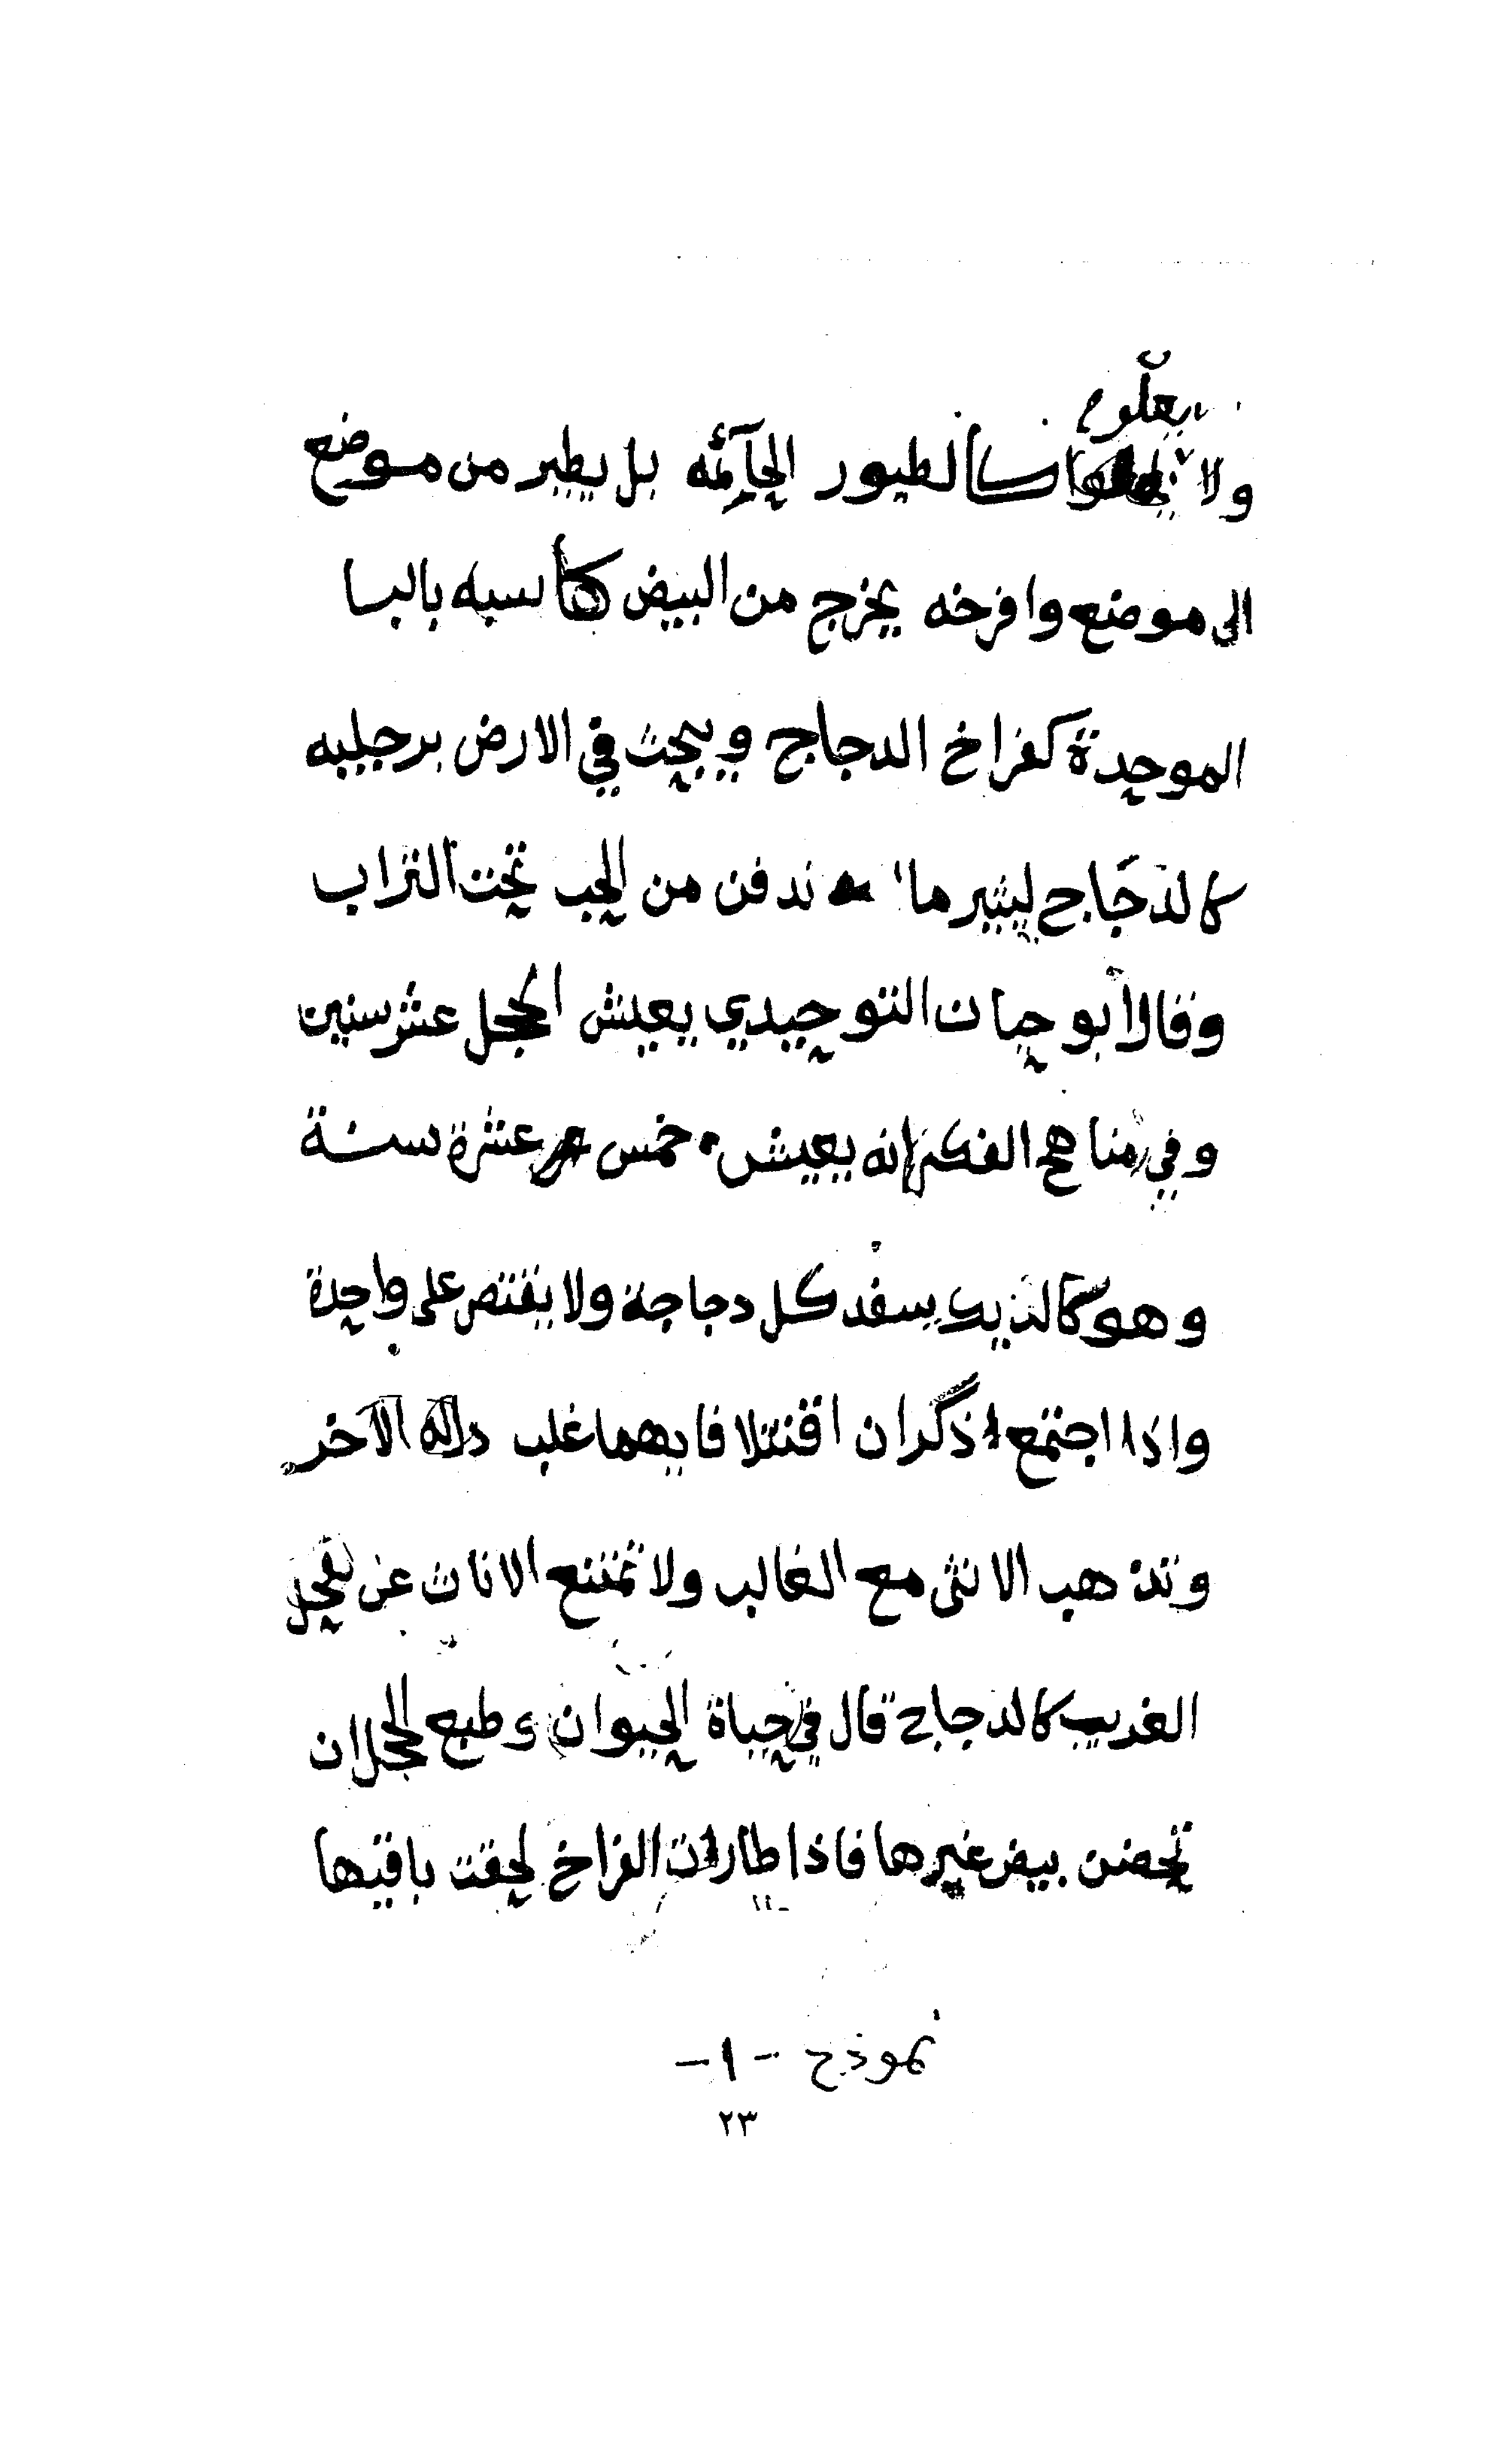 يعلو
ولا الطيور الحآئمه بل يطير من موضع
الى موضع وافرخه يخرج من البيض كأسبه بالبا
الموحدة كفراخ الدجاج ويبحث في الارض برجليه
كالدجاج ليثير ما اندفن من الحب تحت التراب
وقال أبو حيان التوحيدي يعيش الحجل عشر سنين
وفي مناهج الفكر انه يعيش خمس عشرة سنة
وهو كالديك يسفد كل دجاجة ولا يقتصر على واحدة
واذا اجتمع ذكران اقتتلا فايهما غلب ذل له الآخر
وتذهب الانثى مع الغالب ولا تمتنع الاناث عن
الغريب كالدجاج قال في حياة الحيوان وطبع الحجل ان
تحضن بيض غيرها فاذا طارت الفراخ لحقت باقيها
نموذج -١-
٢٣